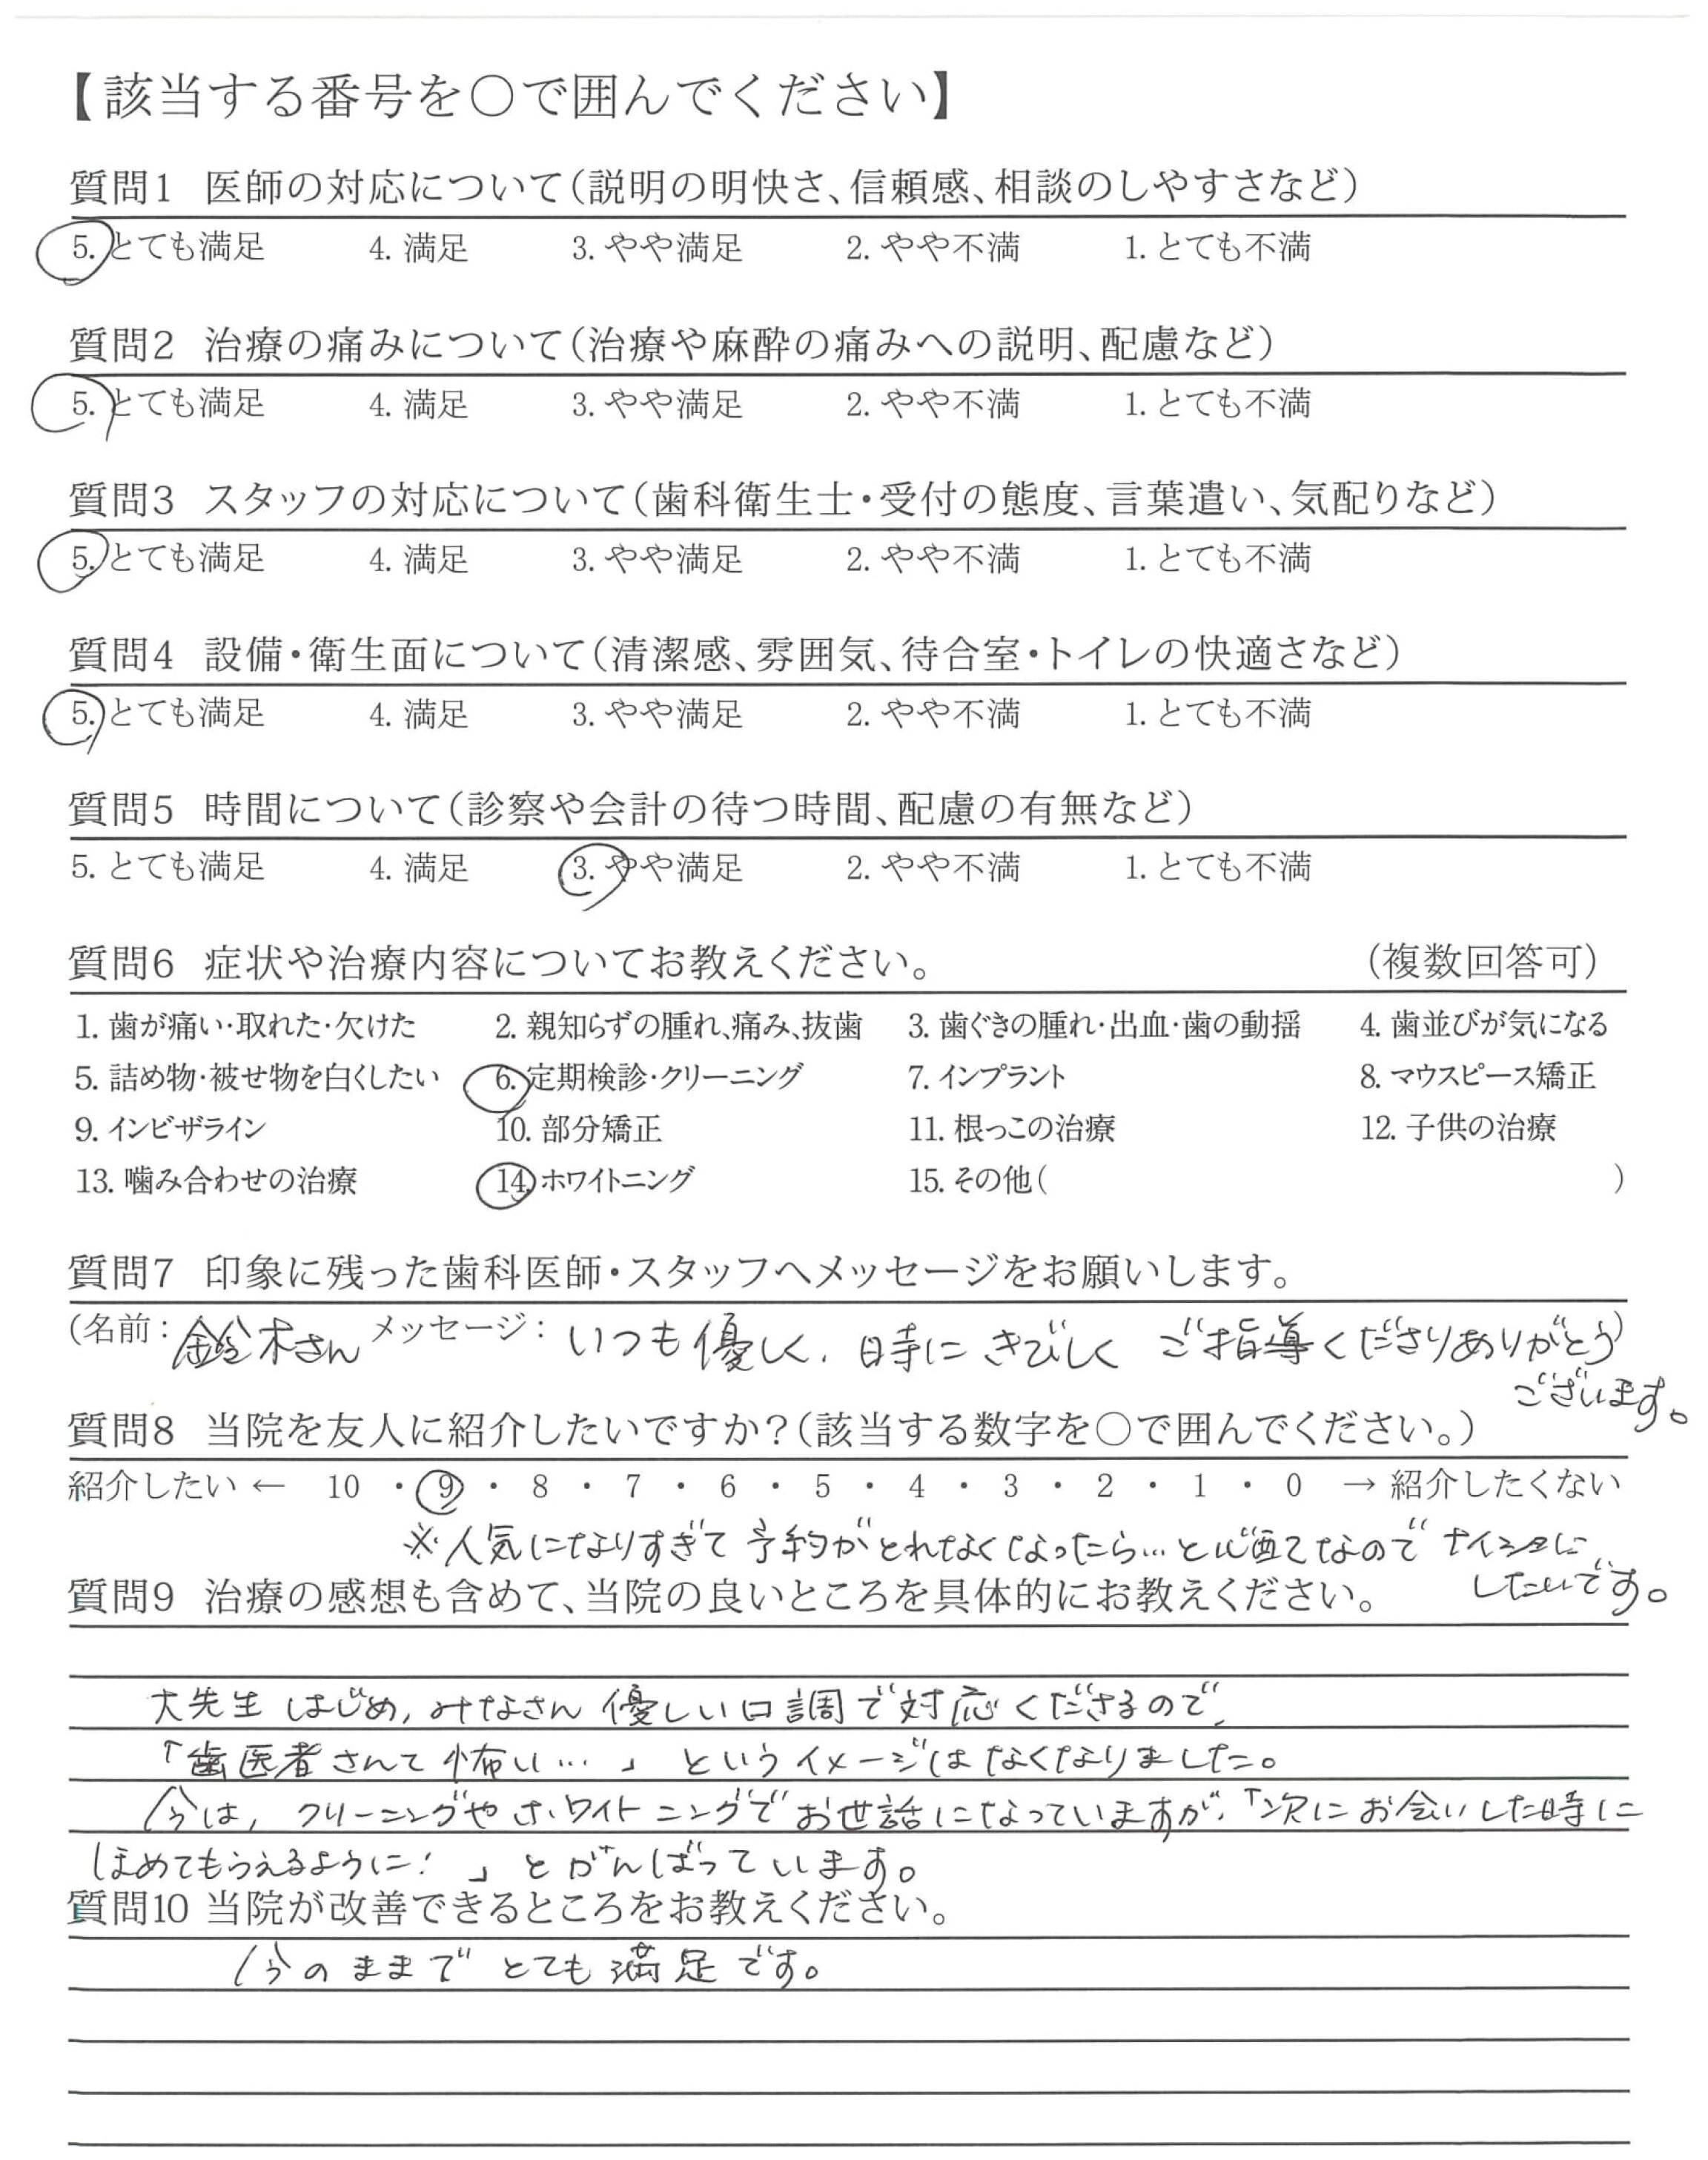 【該当する番号を○で囲んでください】
質問1 医師の対応について(説明の明快さ、信頼感、相談のしやすさなど)
5. とても満足 4. 満足 3. やや満足 2. やや不満 1. とても不満
質問2 治療の痛みについて(治療や麻酔の痛みへの説明、配慮など)
5. とても満足 4. 満足 3. やや満足 2. やや不満 1. とても不満
質問3 スタッフの対応について(歯科衛生士・受付の態度、言葉遣い、気配りなど)
5. とても満足 4. 満足 3. やや満足 2. やや不満 1. とても不満
質問4 設備・衛生面について(清潔感、雰囲気、待合室・トイレの快適さなど)
5. とても満足 4. 満足 3. やや満足 2. やや不満 1. とても不満
質問5 時間について(診察や会計の待つ時間、配慮の有無など)
5. とても満足 4. 満足 3. やや満足 2. やや不満 1. とても不満
質問6 症状や治療内容についてお教えください。 (複数回答可)
1. 歯が痛い・取れた・欠けた 2. 親知らずの腫れ、痛み、抜歯 3. 歯ぐきの腫れ・出血・歯の動揺 4. 歯並びが気になる
5. 詰め物・被せ物を白くしたい 6. 定期検診・クリーニング 7. インプラント 8. マウスピース矯正
9. インビザライン 10. 部分矯正 11. 根っこの治療 12. 子供の治療
13. 噛み合わせの治療 14. ホワイトニング 15. その他( )
質問7 印象に残った歯科医師・スタッフへメッセージをお願いします。
(名前：鈴木さん メッセージ：いつも優しく、時にきびしく ご指導くださりありがとう)
ございます。
質問8 当院を友人に紹介したいですか？(該当する数字を○で囲んでください。)
紹介したい ← 10 ・ 9 ・ 8 ・ 7 ・ 6 ・ 5 ・ 4 ・ 3 ・ 2 ・ 1 ・ 0 → 紹介したくない
※人気になりすぎて 予約がとれなくなったら…と心配なので ナイショに
したいです。
質問9 治療の感想も含めて、当院の良いところを具体的にお教えください。
大先生 はじめ、みなさん 優しい口調で対応くださるので、
「歯医者さんて怖い…」 というイメージはなくなりました。
今は、クリーニングやホワイトニングでお世話になっていますが、「次にお会いした時に
ほめてもらえるように！」とがんばっています。
質問10 当院が改善できるところをお教えください。
今のままで とても満足です。